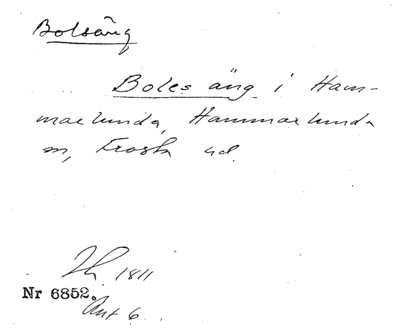 Bolsäng
Boles äng i Ham-
marlunda, Hammarlunda
sn, Frosta hd.
1811
Nr 6852.
Akt 6